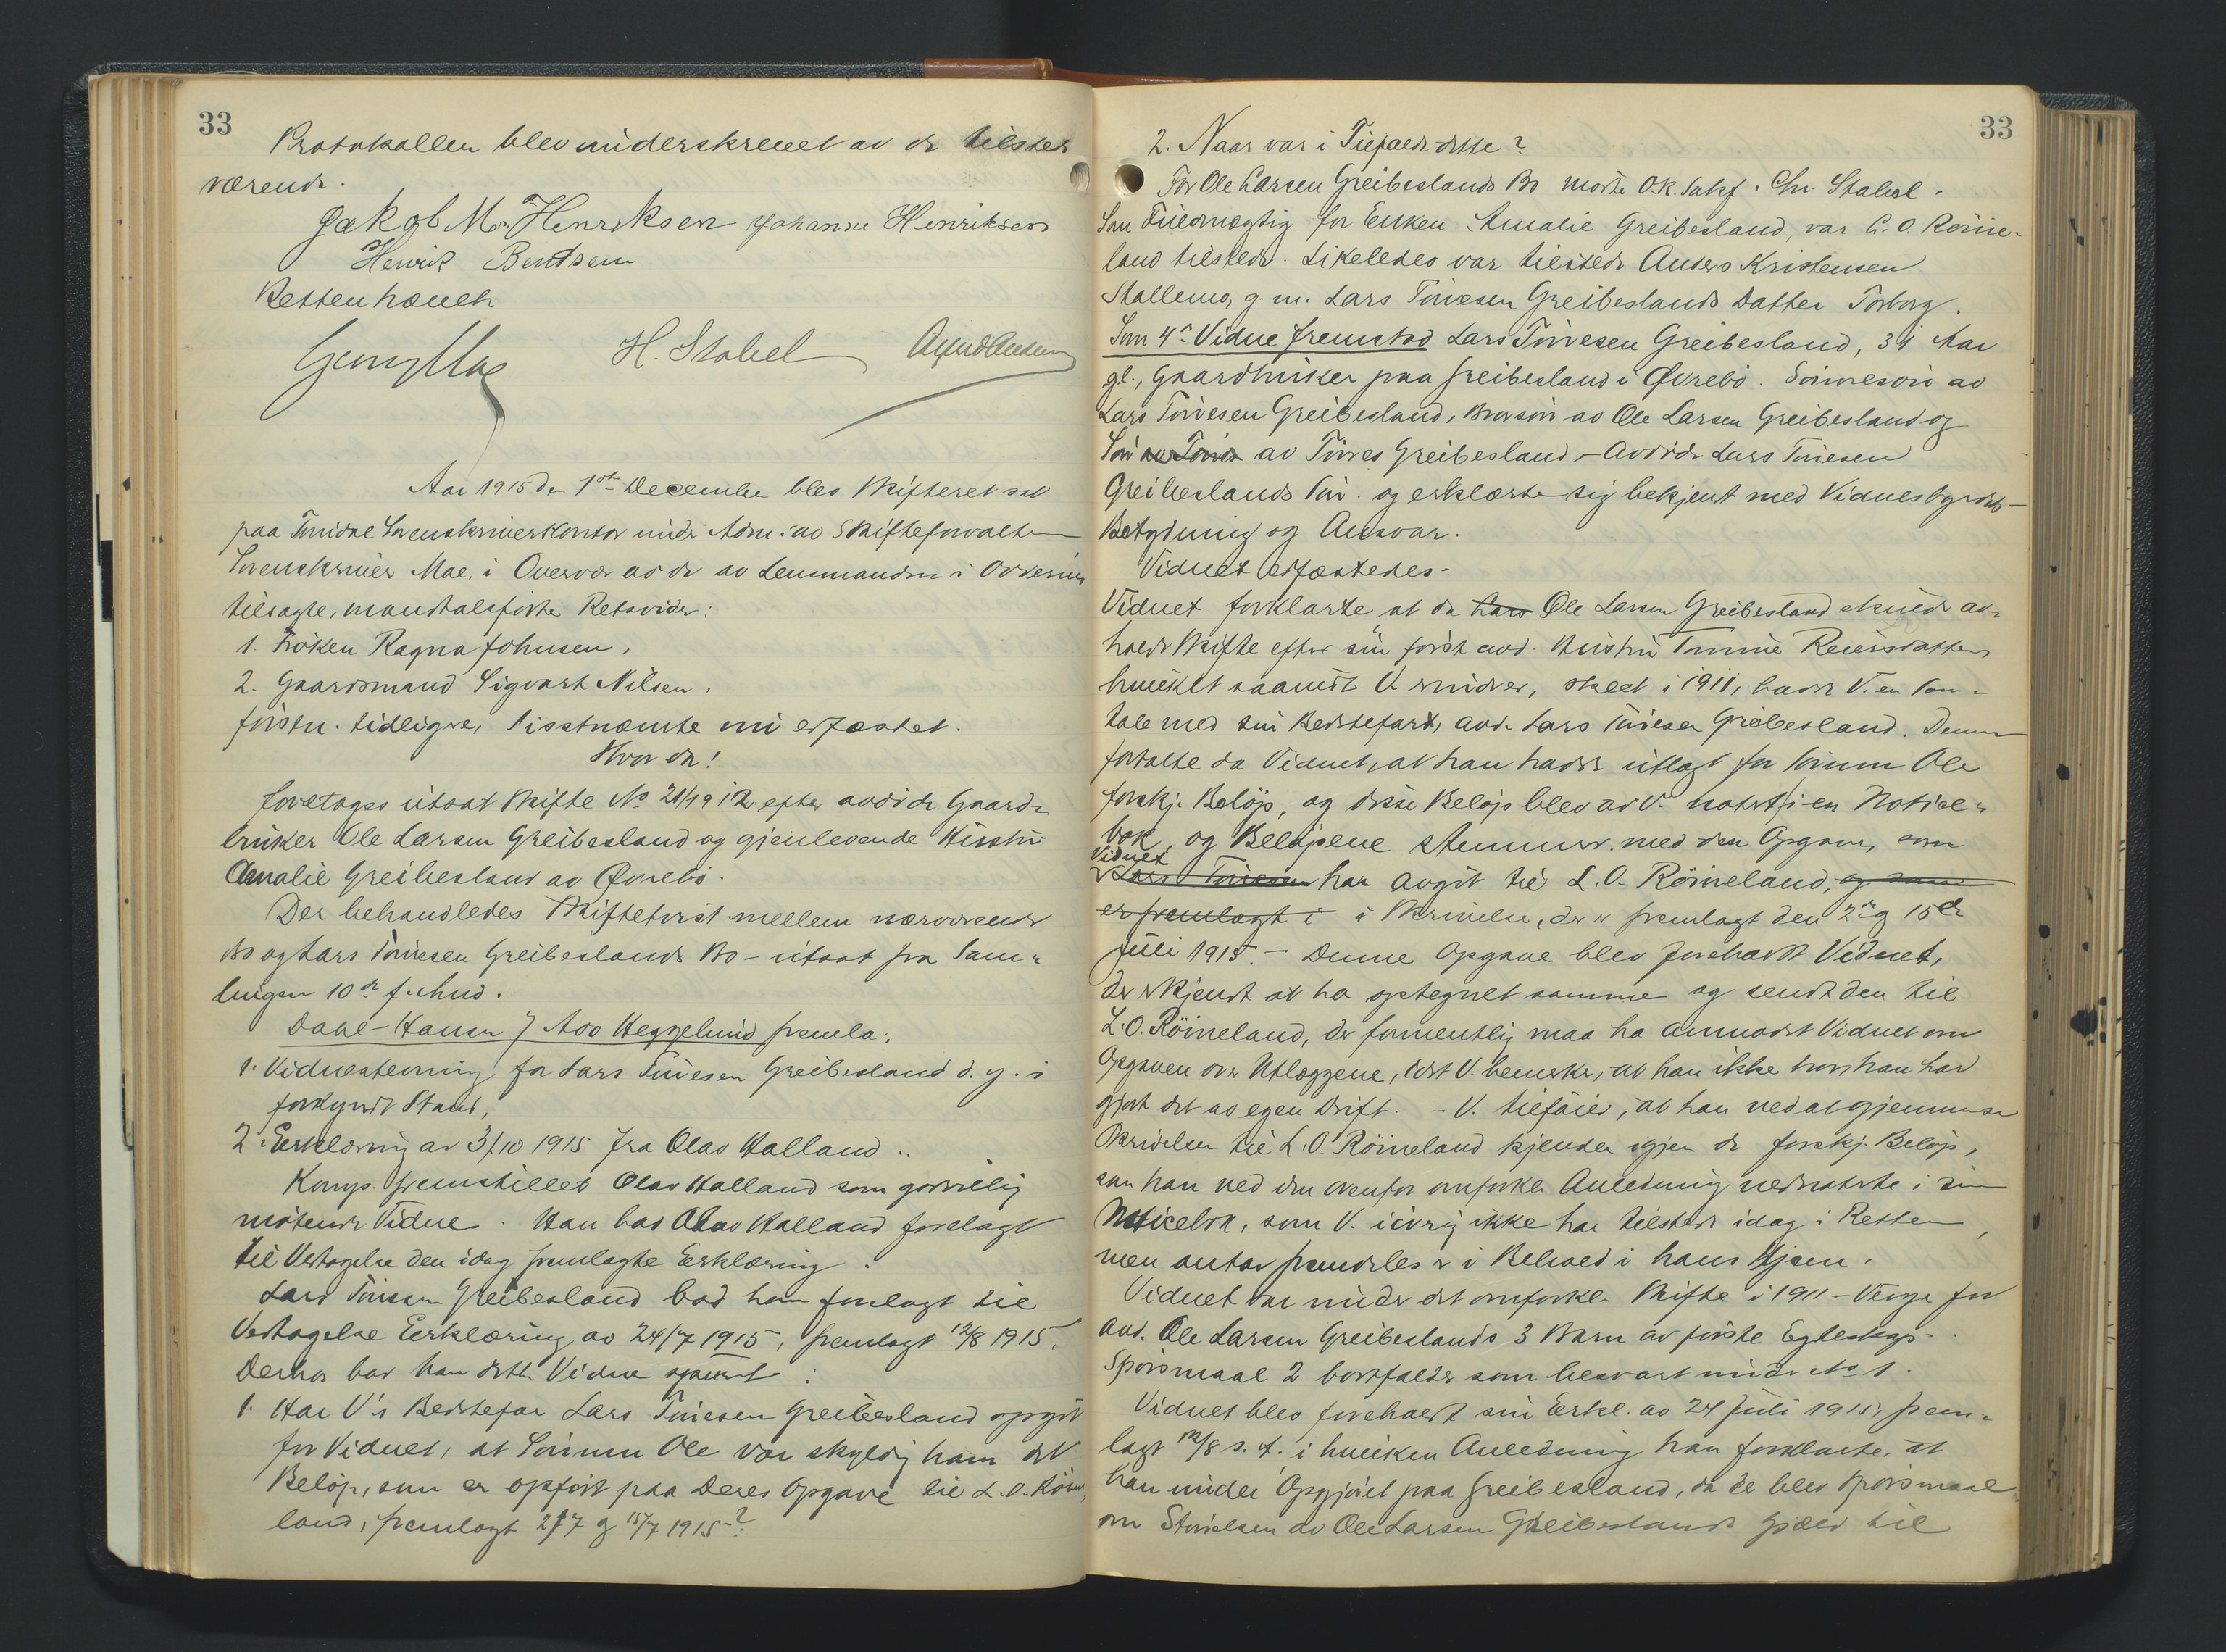 33
Protokollen blev underskrevet av de tilstede
værende.
Jakob M. Henriksen Johanne Henriksen
Henrik Berntsen
Retten hævet
H. Stabel
Aar 1915 den 1ste December blev Skifteret sat
paa Torridal Sorenskriverkontor under Adm. av Skifteforvalter
Sorenskriver Moe, i Overvær av de av Lensmanden i Oddernes
tilsagte, mandtalsførte Retsvidner:
1. Frøken Ragna Johnsen,
2. Gaardmand Sigvart Nilsen.
førstn. tidligere, sisstnæmte nu edfæstet.
Hvor da!
foretages utsat Skifte No 21/1912 efter avdøde Gaard-
bruker Ole Larsen Greibesland og gjenlevende Hustru
Amalie Greibesland av Øvrebø.
Der behandledes Skiftetvist mellem nærværende
Bo og Lars Tørresen Greibeslands Bo - utsat fra Sam-
lingen 10de f. Md.
Dahl-Hansen f Adv Heggelund fremla:
1. Vidnestevning for Lars Tørresen Greibesland d. y. i
forkyndt Stand,
2. Erklæring av 3/10 1915 fra Olav Halland.
Komp. fremstillet Olav Halland som godvillig
møtende Vidne. Han bad Olav Halland forelagt
til Vedtagelse den idag fremlagte Erklæring.
Lars Tørresen Greibesland bad han forelagt til
Vedtagelse Erklæring av 24/7 1915, fremlagt 12/8 1915.
Derhos bad han dette Vidne spurt:
1. Har V's Bedstefar Lars Tørresen Greibesland opgit
for Vidnet, at Sønnen Ole var skyldig ham det
Beløp, som er opført paa Deres Opgave til L. O. Røine-
land, fremlagt 2/7 og 15/7 1915?
33
2. Naar var i Tilfælde dette?
For Ole Larsen Greibeslands Bo møtte O.R. Sakf. Chr. Stabel.
Som Fuldmægtig for Enken Amalie Greibesland, var L. O. Røine-
land tilstede. Likeledes var tilstede Anders Kristensen
Stallemo, g. m. Lars Tørresen Greibeslands Datter Torborg.
Som 4de Vidne fremstod Lars Tørresen Greibesland, 31 Aar
gl., Gaardbruker paa Greibesland i Øvrebø. Sønnesøn av
Lars Tørresen Greibesland, Brorsøn av Ole Larsen Greibesland og
Søn av Tørres av Tørres Greibesland - Avdøde Lars Tørresen
Greibeslands Søn. og erklærte sig bekjent med Vidnesbyrdets
Betydning og Ansvar.
Vidnet edfæstedes.
Vidnet forklarte, at da Lars Ole Larsen Greibesland skulde av-
holde Skifte efter sin først avd. Hustru Tomine Reiersdatter
hvilket saavidt V. erindrer, skeet i 1911, hadde V. en Sam-
tale med sin Bedstefar, avd. Lars Tørresen Greibesland. Denne
fortalte da Vidnet, at han hadde utlagt for Sønnen Ole
forskj. Beløp, og disse Beløp blev av V. notert i en Notice-
bok, og Beløpene stemmer med den Opgave, som
Vidnet
Lars Tørresen har avgit til L. O. Røineland, og som
er fremlagt i i Skrivelse, der er fremlagt den 2den og 15de
Juli 1915. - Denne Opgave blev foreholdt Vidnet,
der erkjendt at ha optegnet samme og sendt den til
L. O. Røineland, der formentlig maa ha anmodet Vidnet om
Opgaven over Utlæggene, idet V. bemerker, at han ikke tror, han har
gjort det av egen Drift. - V. tilføier, at han ved at gjennemse
Skrivelsen til L. O. Røineland kjender igjen de forskj. Beløp,
som han ved den ovenfor omforkl. Anledning nedtegnet i sin
Noticebok, som V. iøvrig ikke har tilstede idag i Retten,
men antar fremdeles er i Behold i hans Hjem.
Vidnet var under det omforkl. Skifte i 1911 - Verge for
avd. Ole Larsen Greibeslands 3 Barn av første Egteskap.
Spørsmaal 2 bortfalder som besvart under No 1.
Vidnet blev foreholdt sin Erkl. av 24 Juli 1915, frem-
lagt 12/8 s. A. i hvilken Anledning han forklarte, at
han under Opgjøret paa Greibesland, da det blev Spørsmaal
om Størrelsen av Ole Larsen Greibeslands Gjæld til